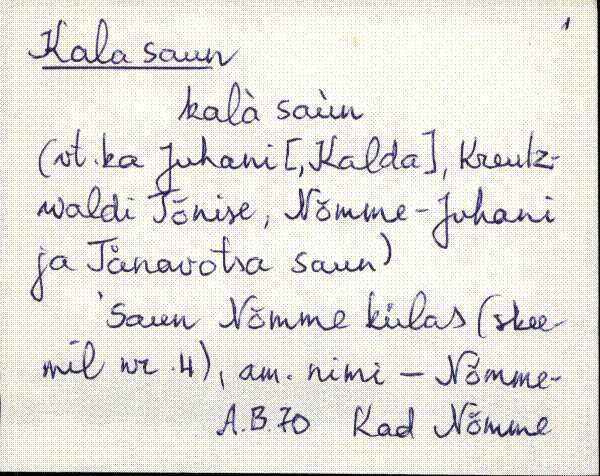 1
Kala saun
kalà saùn
(vt. ka Juhani [, Kalda], Kreutz-
waldi Tõnise, Nõmme-Juhani
ja Tänavotsa saun)
'Saun Nõmme külas (skee-
mil nr. 4), am. nimi – Nõmme-
A.B.70 Kad Nõmme